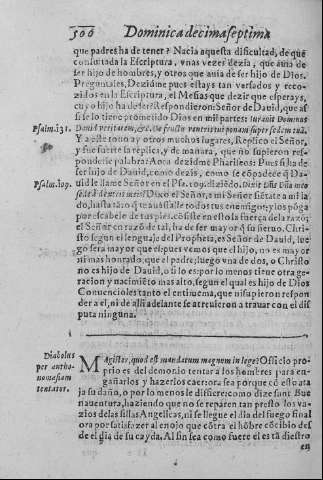 500 Dominica decimaseptima
que padres ha de tener? Nacia aquesta dificultad, de que
consultada la Escriptura, vnas vezes dezia, que auia de
ser hijo de hombres, y otros que auia de ser hijo de Dios.
Preguntales, Dezidme pues estays tan versados y reco-
zidos en la Escriptura, el Mesias que dezir que esperays,
cuyo hijo ha de ser? Respondieron: Señor de Dauid, que as-
si se lo tiene prometido Dios en mil partes: Iurauit Dominus
Psalm. 131. Dauid veritatem, &c. De fructu ventris tui ponam super sedem tuã.
Y a este tono ay otros muchos lugares, Replico el Señor,
y fue fuerte la replica, y de manera, que no supieron res-
ponderle palabra: Aora dezidme Phariseos: Pues si ha de
ser hijo de Dauid, como dezis, como se cõpadece q̃ Da-
Psalm. 109. uid le llame Señor en el Ps. 109. diziẽdo. Dixit Dñs Dño meo
sede à dextris meis? Dixo el Señor, a mi Señor sietate a mi la-
do, hasta tãto q̃ te auassalle todos tus enemigos, y los põga
por escabelo de tus pies. cõsiste en esto la fuerça de la razõ;
el Señor en razõ de tal, ha de ser mayor q̃ su sieruo. Chri-
sto segun el lenguaje del Propheta, es Señor de Dauid, lue-
go sera mayor que el: pues vemos que el hijo, no es mayor
ni mas honrado, que el padre; luego vna de dos, o Christo
no es hijo de Dauid, o si lo es: por lo menos tiene otra ge-
neracion y nacimiẽto mas alto, segun el qual es hijo de Dios
Conuencioles tanto el entimema, que ni supieron respon-
der a el, ni de alli adelante se atreuieron a trauar con el dis
puta ninguna.
Diabolus
per antho-
nomasiam
tentator.
Magister, quod est mandatum magnum in lege? Officio pro-
prio es del demonio tentar a los hombres para en-
gañarlos y hazerlos caer: ora sea porque cõ esto ata
ja su daño, o por lo menos le diffiere: como dize sant Bue
nauentura, haziendo que no se reparen tan presto los va-
zios de las sillas Angelicas, ni se llegue el dia del fuego final
ora por satisfazer al enojo que cõtra el hõbre cõcibio des
de el dia de su cayda. Al fin sea como fuere el es tã diestro
en